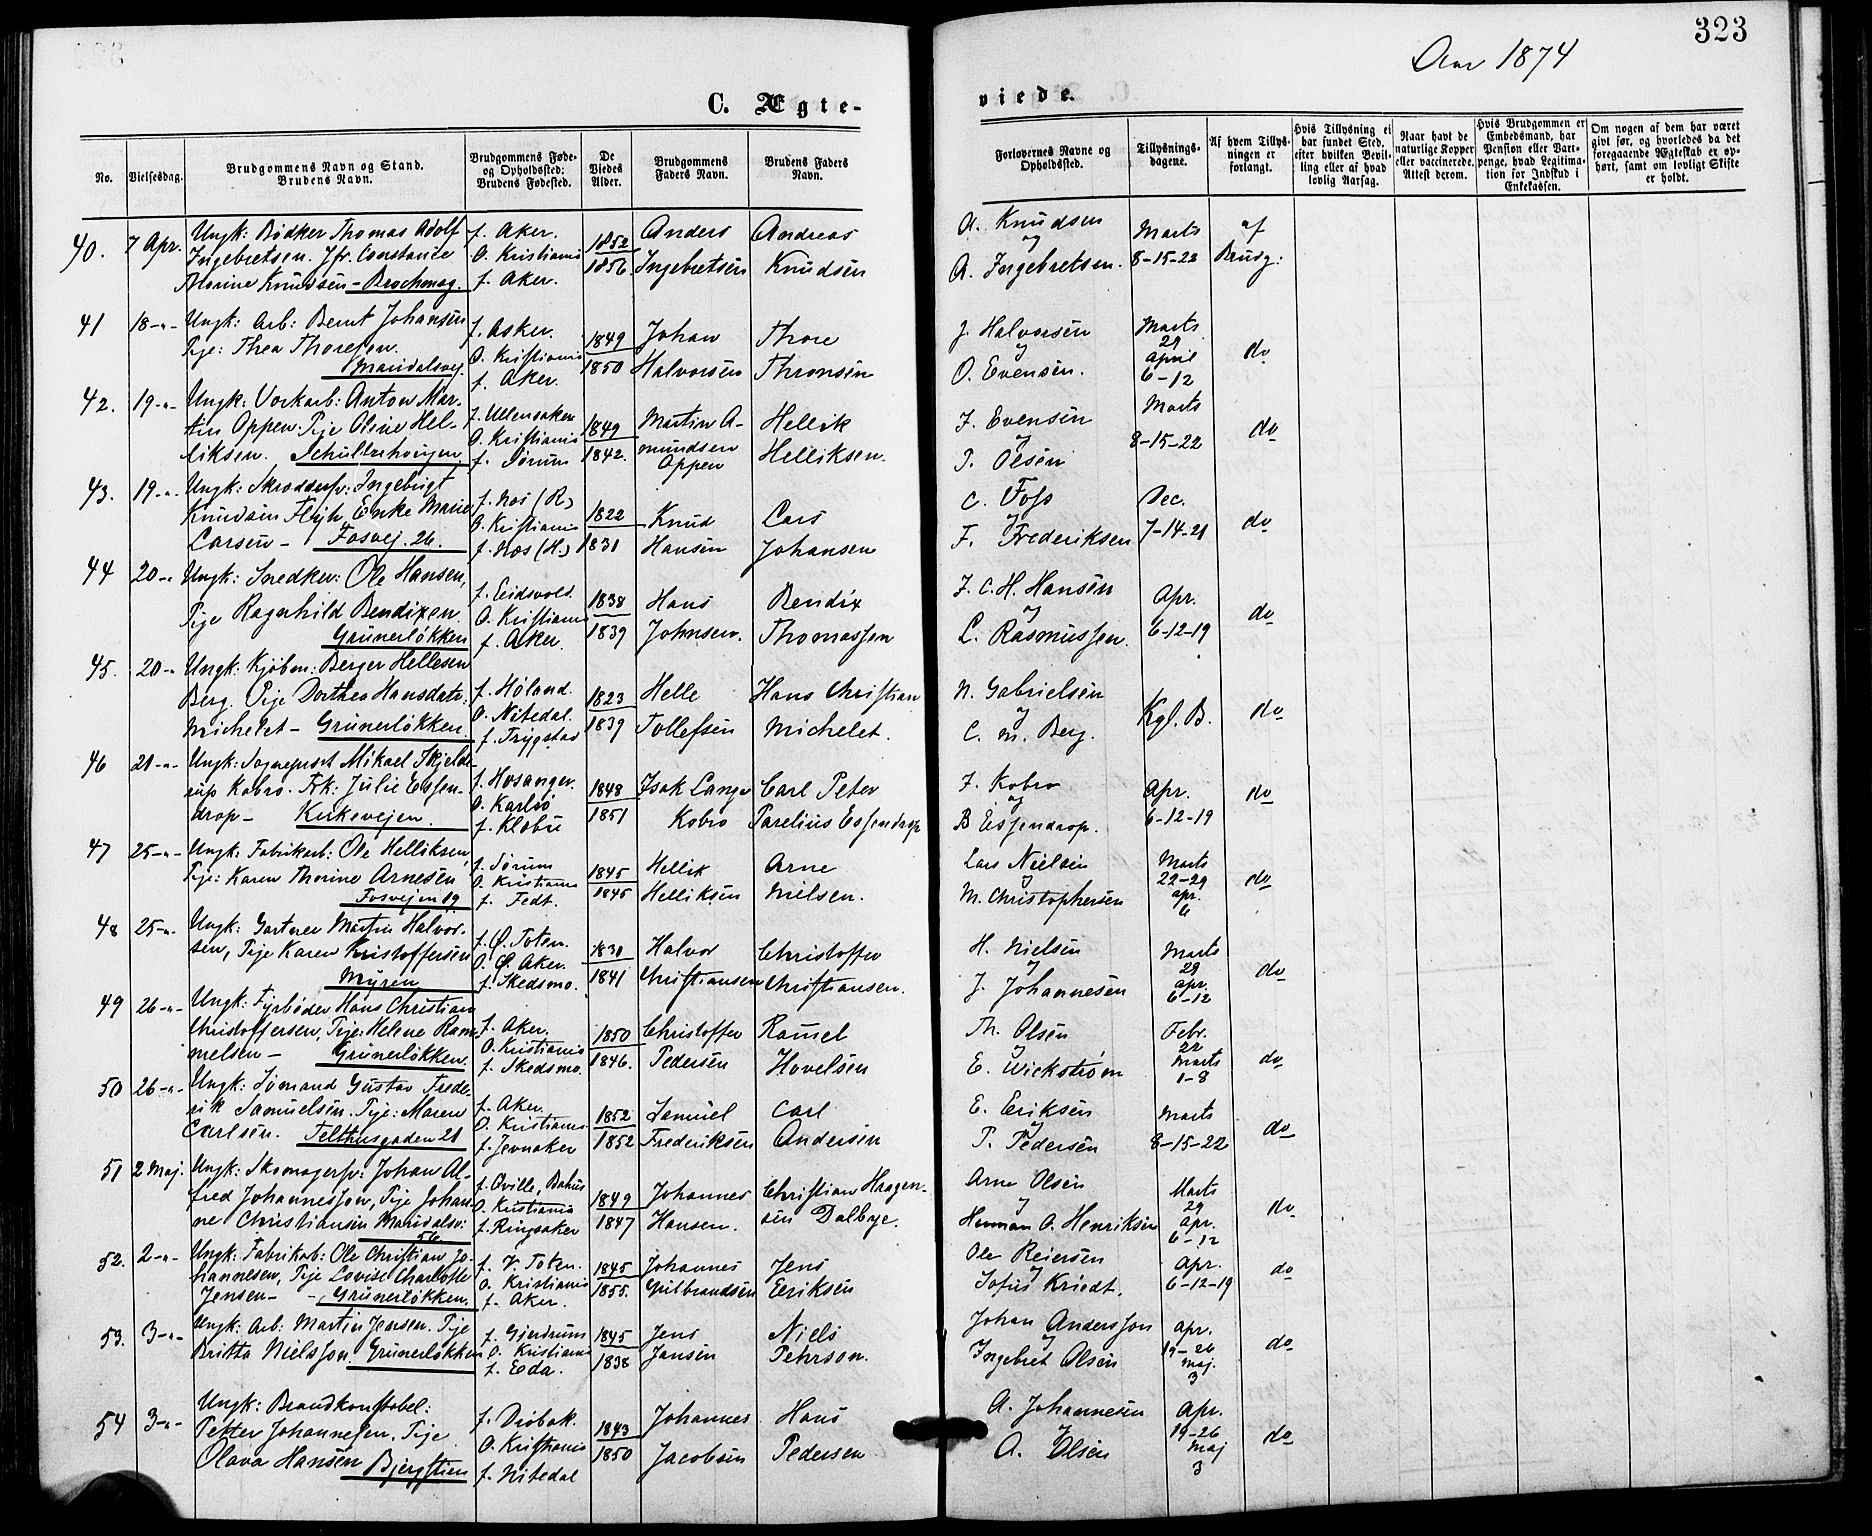 323
Aar 1874
C. Ægte-
viede.
No.
Vielsesdag.
Brudgommens Navn og Stand.
Brudens Navn.
Brudgommens Føde-
og Opholdssted:
Brudens Fødested.
De
Viedes
Alder.
Brudgommens
Faders Navn.
Brudens Faders
Navn.
Forlovernes Navne og
Opholdssted.
Tillysnings-
dagene.
Af hvem Tillys-
ningen er
forlangt.
Hvis Tillysning ei
har fundet Sted,
efter hvilken Bevil-
ling eller af hvad
lovlig Aarsag.
Naar havt de
naturlige Kopper
eller vaccinerede.
Attest derom.
Hvis Brudgommen er
Embedsmand, har
Pension eller Vart-
penge, hvad Legitima-
tion for Indskud i
Enkekassen.
Om nogen af dem har været
givt før, og hvorledes da det
foregaaende Ægteskab er op-
hørt, samt om lovligt Skifte
er holdt.
40. 7 Apr. Ungk: Bødker Thomas Adolf f. Aker. 1852 Anders Andreas A. Knudsen Marts af
Ingebretsen. Jfr. Constance O. Kristiania 1856. Ingebretsen Knudsen og 8-15-22 Brudg:
Thorine Knudsen - f. Aker. A. Ingebretsen.
41 18-"- Ungk: Arb: Bernt Johansen f. Asker. 1849 Johan Thore J. Halvorsen Marts 29 do
Pige: Thea Thoresen. O. Kristiania 1850 Halvorsen Thronsen og April
Maridalsvej. f. Aker. O. Evensen. 6-12
42. 19-"- Ungk: Værkarb: Anton Mar- f. Ullensaker 1849 Martin A- Hellik J. Evensen Marts do
tin Oppen. Pije Oline Hel- O. Kristiania 1842. mundsen Helliksen. og 8-15-22
liksen. f. Sørum Oppen P. Olsen
43. 19-"- Ungk: Skræddersv: Ingebrigt f. Næs (R) 1822 Knud Lars C. Foss Dec. do
Knudsen Enke Marie O. Kristiania 1831 Hansen Johansen og 7-14-21
Larsen - Fosvej. 26. f. Næs (H.) F. Frederiksen
44 20-"- Ungk: Snedker: Ole Hansen, f. Eidsvold 1838 Hans Bendix J. C. H. Hansen Apr. do
Pige Ragnhild Bendixen. O. Kristiania 1839 Johnsen. Thomassen og 6-12-19
Grünerløkken f. Aker. L. Rasmussen.
45. 20-"- Ungk: Kjøbm: Berger Hellesen f. Høland. 1823 Helle Hans Christian N. Gabrielsen Kgl. B. do
Berg. Pije Dorthea Hansdatr: O. Nitedal. 1839 Tollefsen Michelet. og
Michelet - Grünerløkken. f. Trygstad C. M. Berg.
46 21-"- Ungk: Sogneprest Mikael Skjelde- f. Hosanger. 1848 Isak Lange Carl Peter J. Kobro Apr. do
rup Kobro. Frk: Julie Essen- O. Karlsø 1851 Kobro Parelius Essendrop og 6-12-19
drop - Kirkevejen. f. Klæbu B Essendrop.
47 25-"- Ungk: Fabrikarb: Ole Helliksen, f. Sørum 1845 Hellik Arne Lars Nielsen Marts do
Pije: Karen Thorine Arnesen O. Kristiania 1845 Helliksen Nielsen. og 22-29
Fosvejen 19 f. Fedt. M. Christophersen apr. 6
48 25-"- Ungk: Gartner Martin Halvor- f. Ø. Toten. 1830 Halvor Christoffer H. Nielsen Marts 29 do
sen, Pije Karen Kristoffersen O. Ø. Aker. 1841 Christiansen Christiansen. og apr.
Myren f. Skedsmo. J. Johannesen 6-12
49 26-"- Ungk: Fyrbøder Hans Christian f. Aker. 1850 Christoffer Ramel Th. Olsen Febr. 22 do
Christoffersen, Pije: Helene Ram- O. Kristiania 1846. Pedersen Hovelsen og Marts
melsen - Grünerløkken. f. Skedsmo. E. Wickstrøm 1-8
50 26-"- Ungk: Sømand Gustav Frede- f. Aker. 1852 Samuel Carl E. Eriksen Marts do
rik Samuelsen. Pije: Maren O. Kristiania 1852 Frederiksen Andersen og 8-15-22
Carlsen. Felthusgaden 21 f. Jevnaker P. Pedersen
51 2 Maj. Ungk: Skomagersv: Johan Al- f. Qville, Bahus 1849 Johannes Christian Haagen- Arne Olsen Marts 29 do
fred Johannesson, Pije Johan- O. Kristiania 1847 Hansen. sen Dalbye. og apr.
ne Christiansen Maridalsv: 56 f. Ringsaker Herman O. Henriksen 6-12
52. 2-"- Ungk: Fabrikab: Ole Christian Jo- f. V. Toten. 1845 Johannes Jens Ole Reiersen apr. do
hannesen, Pije Lovise Charlotte O. Kristiania 1855. Gulbrandsen Eeriksen og 6-12-19
Jensen - Grünerløkken. f. Aker. Sofus Kriedt.
53. 3-"- Ungk: Arb: Martin Jensen. Pije f. Gjerdrum 1845 Jens Niels Johan Andersson apr. do
Britta Nielsson. Grünerløkken O. Kristiania 1838 Jansen Pehrson. og 19-26
f. Eda. Ingebret Olsen Maj. 3
54 3-"- Ungk: Brandkonstabel: f. Drøbak. 1843 Johannes Hans A. Johannesen Apr. do
Petter Johannesen. Pije O. Kristiania 1850 Jacobsen Pedersen og 19-26
Olava Hansen Bjergstien f. Nitedal A. Olsen Maj 3